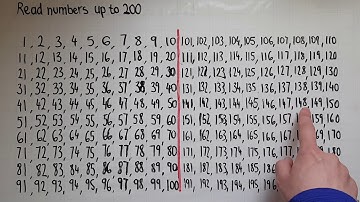 Read numbers up to 200
1, 2, 3, 4, 5, 6, 7, 8, 9, 10 101, 102, 103, 104, 105, 106, 107, 108, 109, 110
11, 12, 13, 14, 15, 16, 17, 18, 19, 20 111, 112, 113, 114, 115, 116, 117, 118, 119, 120
21, 22, 23, 24, 25, 26, 27, 28, 29, 30 121, 122, 123, 124, 125, 126, 127, 128, 129, 130
31, 32, 33, 34, 35, 36, 37, 38, 39, 40 131, 132, 133, 134, 135, 136, 137, 138, 139, 140
41, 42, 43, 44, 45, 46, 47, 48, 49, 50 141, 142, 143, 144, 145, 146, 147, 148, 149, 150
51, 52, 53, 54, 55, 56, 57, 58, 59, 60 151, 152, 153, 154, 155, 156, 157, 159, 160
61, 62, 63, 64, 65, 66, 67, 68, 69, 70 161, 162, 163, 164, 165, 166, 169, 170
71, 72, 73, 74, 75, 76, 77, 78, 79, 80 171, 172, 173, 174, 175, 176, 177, 180
81, 82, 83, 84, 85, 86, 87, 88, 89, 90 181, 182, 183, 184, 185, 186, 190
91, 92, 93, 94, 95, 96, 97, 98, 99, 100 191, 192, 193, 194, 195, 196